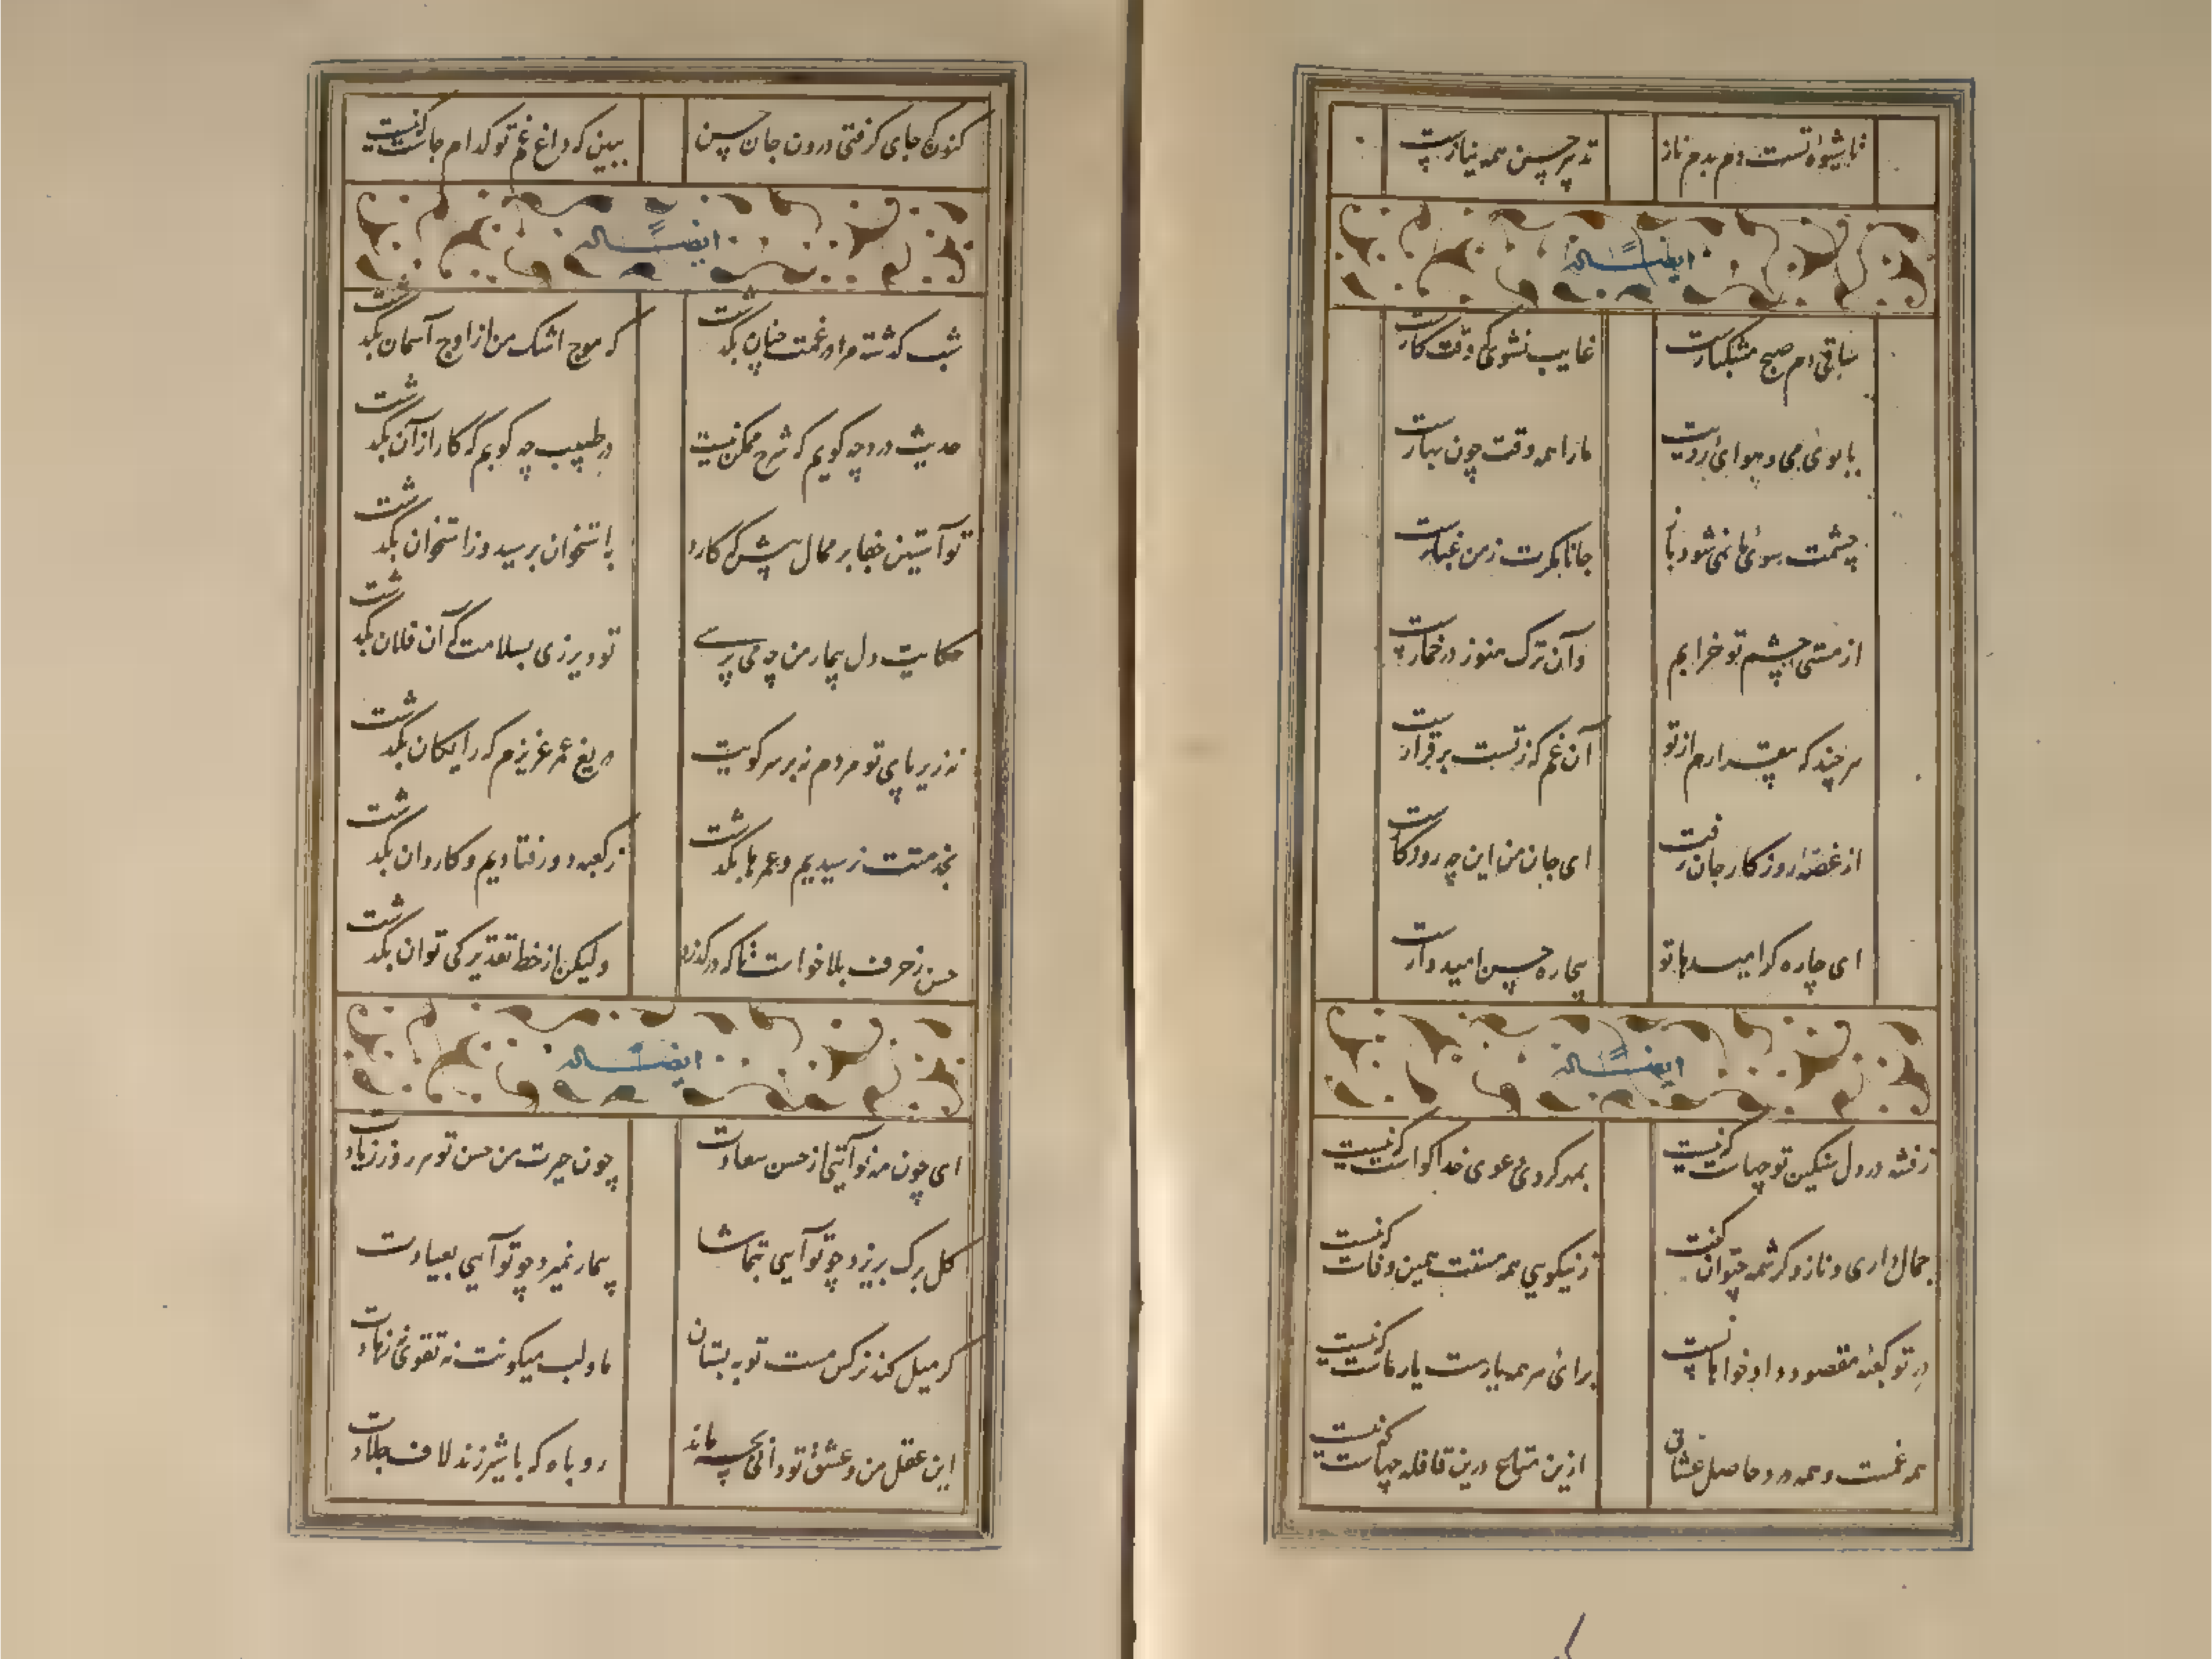 تا شیوه تست دم بدم ناز تدبیر حسن همه نیازست
ایضاً له
ساقی دم صبح مشکبارست غایب نشوی که وقت کارست
با بوی می و هوای رویت ما را همه وقت چون بهارست
چشمت بسوی ما نمی شود باز جانا مگرت ز من غبارست
از مستی چشم تو خرابیم وآن ترک هنوز در خمارست
هر چند که بیقرارم از تو آن غم که ز تست برقرارست
از غصه روزکار جان رفت ای جان من این چه روزکارست
ای چاره کر امیدها تو بیچاره حسن امیدوارست
ایضاً له
ز فتنه در دل سنکین تو چهاست که نیست بمهر کردی دعوی خدا کواست که نیست
جمال داری و ناز و کرشمه چتوان کفت ز نیکویی همه هستت همین وفاست که نیست
در تو کعبه مقصود و دادخواها نست برای هر همه یارست یار ماست که نیست
همه غمست و همه درد حاصل عشاق ازین متاع درین قافله چهاست که نیست
کنون که جای کرفتی درون جان حسن ببین که داغ غم تو کدام جاست که نیست
ایضاً له
شب کذشته مرا در غمت چنان بکذشت که موج اشک من از اوج آسمان بکذشت
حدیث درد چه کویم که شرح ممکن نیست در طبیب چه کوبم که کار از آن بکذشت
تو آستین جفا بر ممال پیش که کارد باستخوان برسید و ز استخوان بکذشت
حکایت دل بیمار من چه می پرسی تو دیر زی بسلامت که آن فلان بکذشت
نه زیر پای تو مردم نه بر سر کویت دریغ عمر عزیزم که رایکان بکذشت
بخدمتت نرسیدیم و عمرها بکذشت ز کعبه دور فتادیم و کاروان بکذشت
حسن ز حرف بلا خواست تا که درکذرد ولیکن از خط تقدیر کی توان بکذشت
ایضاً له
ای چون مه نو آیتی از حسن سعادت چون حیرت من حسن تو هر روز زیادت
کل برک بریزد چو تو آیی بتماشا بیمار نمیرد چو تو آیی بعیادت
کر میل کند نرکس مست تو به بستان ما و لب میکونت نه تقوی نه زهادت
این عقل من و عشق تو دانی بچه ماند روباه که با شیر زند لاف جلادت